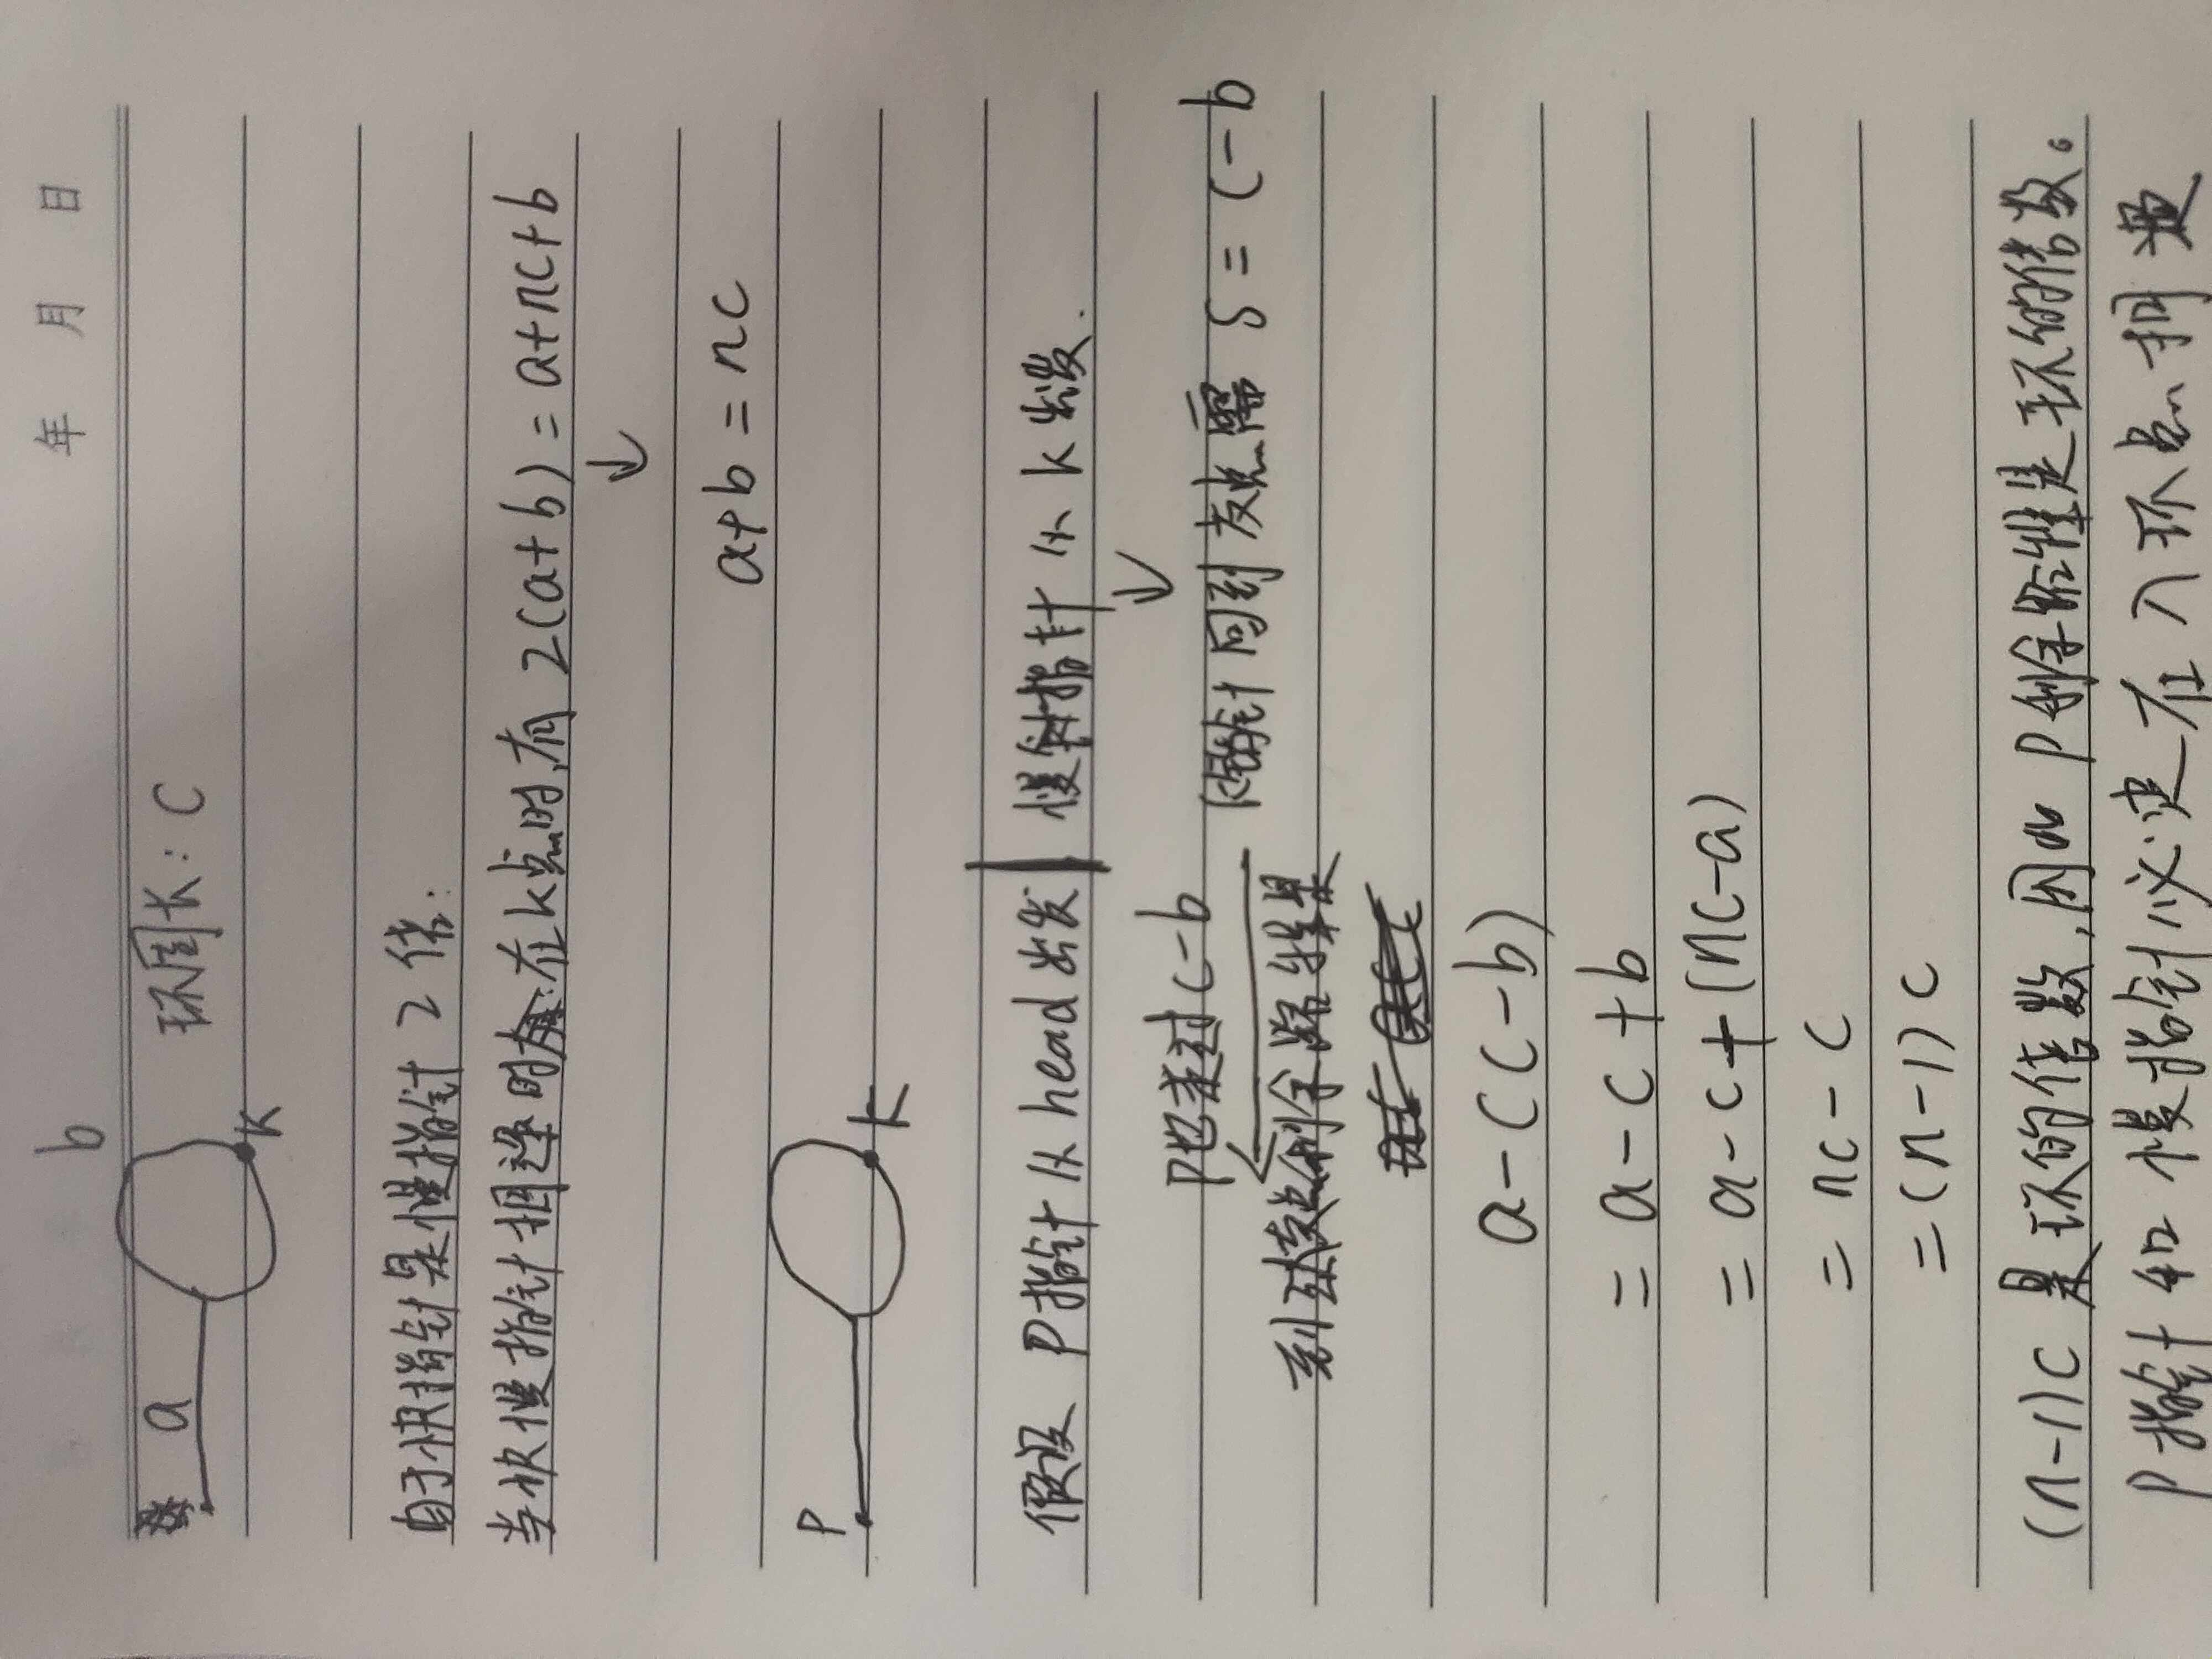 年 月 日
b
a
环周长: C
K
由于快指针是慢指针 2 倍:
当快慢指针相逢时在k点时,有 2(a+b) = a+nc+b
↓
a+b = nc
P
k
假设 P指针从head出发 | 慢指针从 k出发.
↓
P也走过c-b
← k指针回到交点需 S = c-b
到达交点剩余路程是
a-(c-b)
= a-c+b
= a-c+(nc-a)
= nc-c
=(n-1)c
(n-1)c 是环的倍数,因此 P剩余路程是环的倍数。
P指针和慢指针必定在入环点相遇